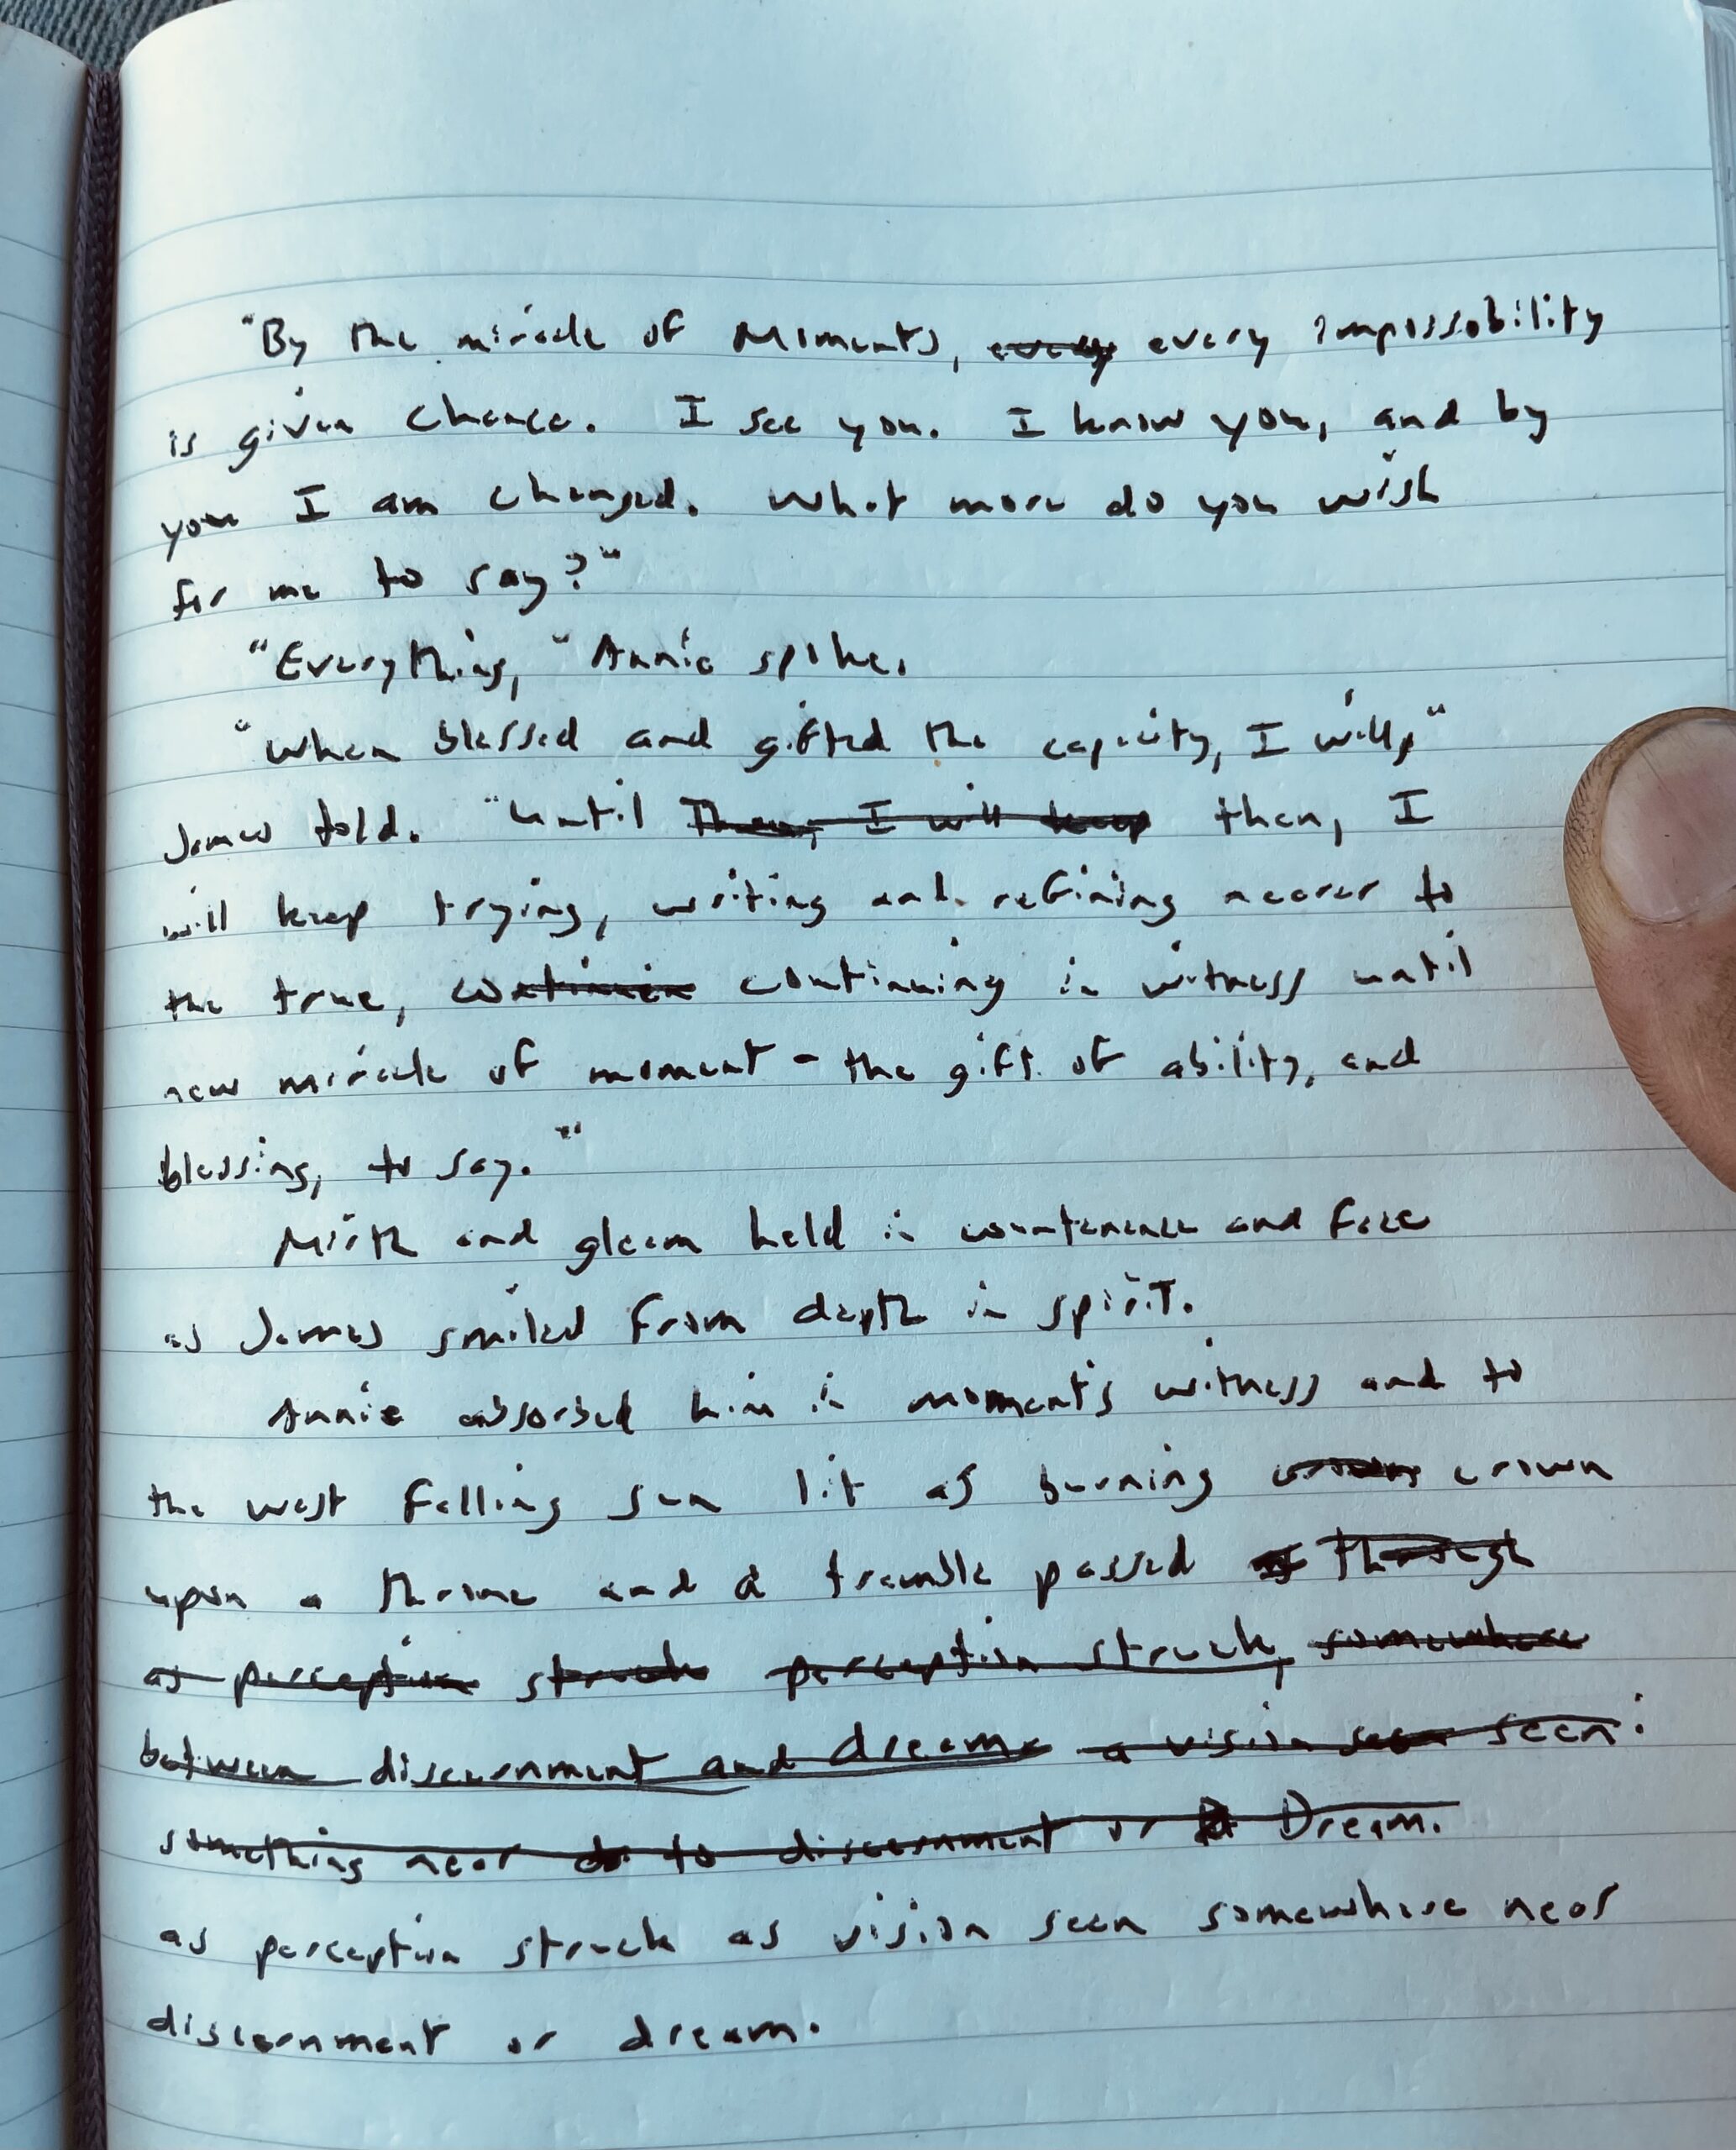 "By the miracle of Moments, every every impossobility
is given chance. I see you. I know you, and by
you I am changed. What more do you wish
for me to say?"
"Everything," Annie spoke.
"When blessed and gifted the capacity, I will,"
James told. "Until Then, I will keep then, I
will keep trying, writing and refining nearer to
the true, continuin continuing in witness until
new miracle of moment - the gift of ability, and
blessing, to say."
Mirth and gleam held in countenance and face
as James smiled from depth in spirit.
Annie absorbed him in moment's witness and to
the west falling sun lit as burning crown crown
upon a throne and a tremble passed through
as perception struck perception struck, somewhere
between discernment and dreams a vision seen seen:
something near to discernment or Dream.
as perception struck as vision seen somewhere near
discernment or dream.